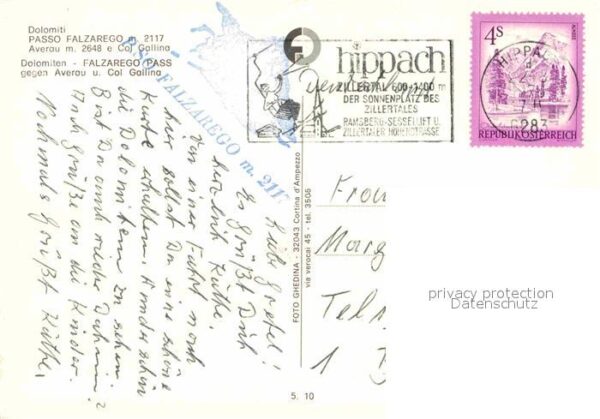 Dolomiti
PASSO FALZAREGO m. 2117
Averau m. 2648 e Col Gallina
Dolomiten - FALZAREGO PASS
gegen Averau u. Col Gallina
PASSO FALZAREGO m. 2117
hippach
ZILLERTAL 600-1400 m
DER SONNENPLATZ DES
ZILLERTALES
RAMSBERG-SESSELLIFT U.
ZILLERTALER HÖHENSTRASSE
4S
REPUBLIK ÖSTERREICH
HIPPA
6283
Liebe Gretel!
Es grüßt Dich
herzlich Käthe.
Von einer Fahrt nach
hier sollst Du eine schöne
Karte erhalten. Wunderschön
die Dolomiten zu sehen.
Bist Du auch wieder Daheim?
Auch Grüße an die Kinder.
Nochmals Grüßt Käthe.
FOTO GHEDINA - 32043 Cortina d'Ampezzo
via verocai 45 - tel. 3506
Frau
Marg
Tel
1
privacy protection
Datenschutz
5. 10